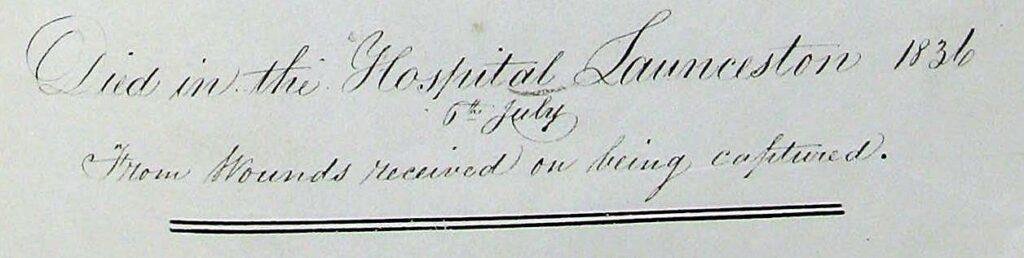 Died in the Hospital Launceston 1836
6th July
From Wounds received on being captured.